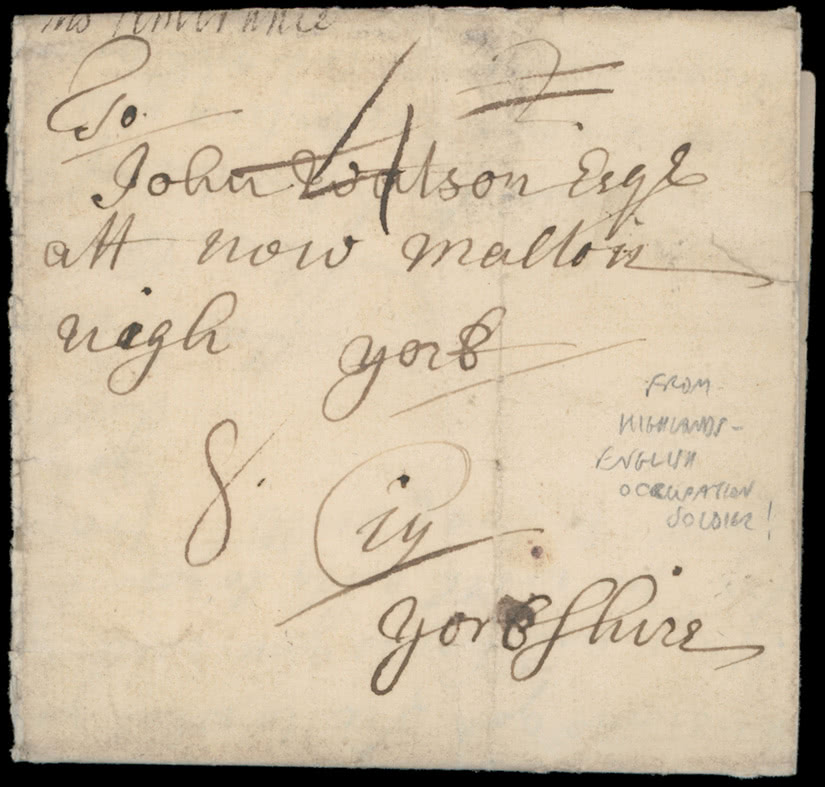 To
John Watson Esqr
att now malton
nigh york
8
in
yorkshire
FROM
HIGHLANDS -
ENGLISH
OCCUPATION
SOLDIER!